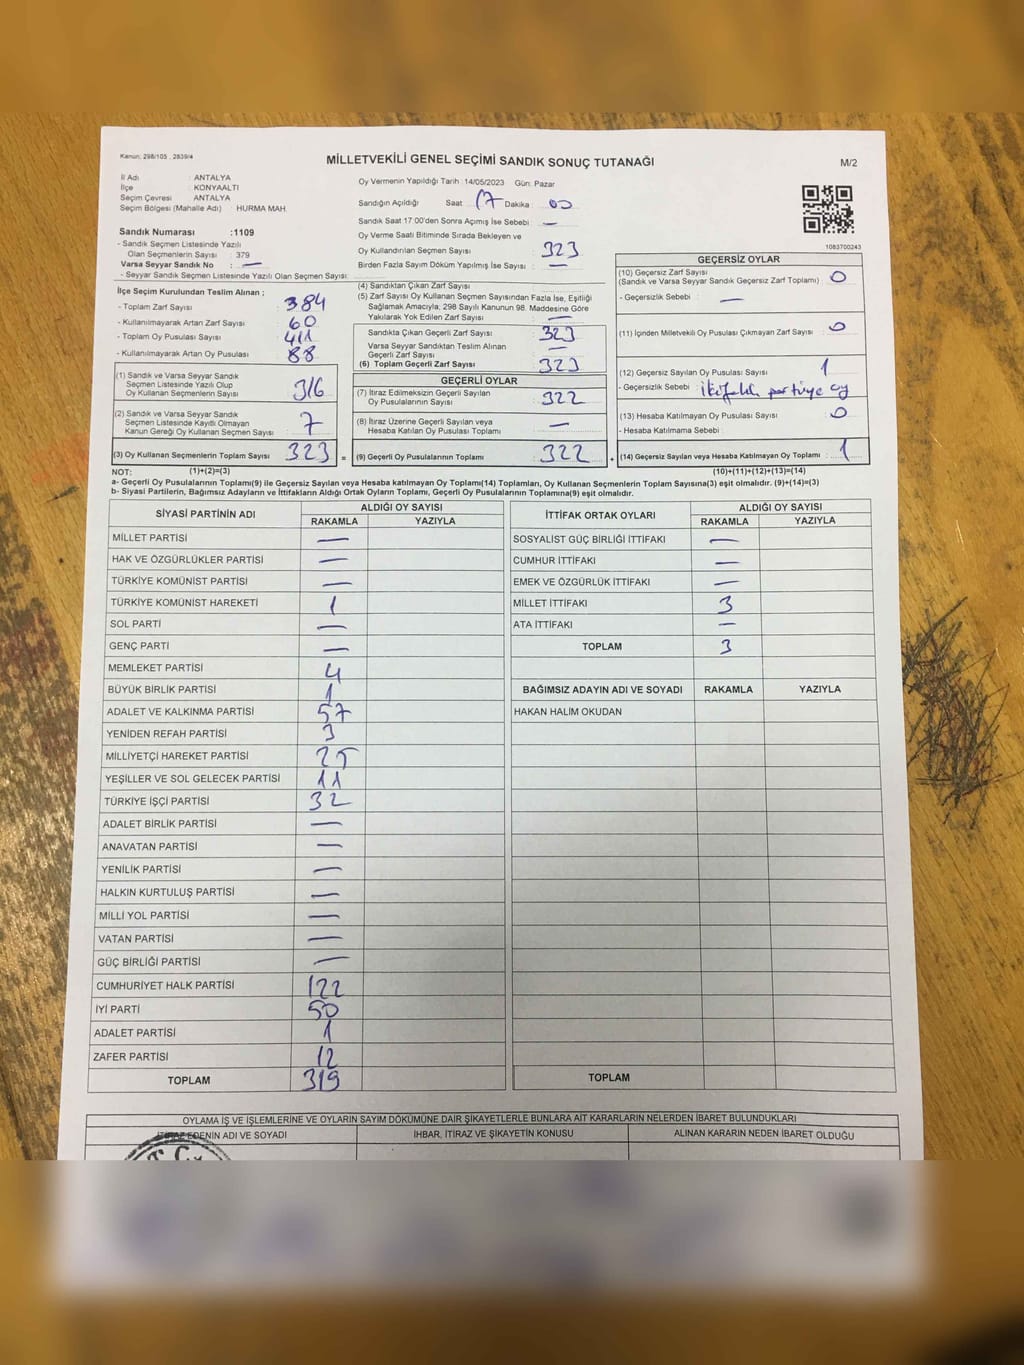 Kanun: 298/105 , 2839/4
MİLLETVEKİLİ GENEL SEÇİMİ SANDIK SONUÇ TUTANAĞI
M/2
İl Adı : ANTALYA
İlçe : KONYAALTI
Seçim Çevresi : ANTALYA
Seçim Bölgesi (Mahalle Adı) : HURMA MAH.
Sandık Numarası :1109
- Sandık Seçmen Listesinde Yazılı
Olan Seçmenlerin Sayısı : 379
Varsa Seyyar Sandık No : —
- Seyyar Sandık Seçmen Listesinde Yazılı Olan Seçmen Sayısı:
Oy Vermenin Yapıldığı Tarih :14/05/2023 Gün: Pazar
Sandığın Açıldığı Saat : 17 Dakika : 00
Sandık Saat 17:00'den Sonra Açımış İse Sebebi : —
Oy Verme Saati Bitiminde Sırada Bekleyen ve
Oy Kullandırılan Seçmen Sayısı : 323
Birden Fazla Sayım Döküm Yapılmış İse Sayısı : —
1083700243
İlçe Seçim Kurulundan Teslim Alınan ;
- Toplam Zarf Sayısı : 384
- Kullanılmayarak Artan Zarf Sayısı : 60
- Toplam Oy Pusulası Sayısı : 411
- Kullanılmayarak Artan Oy Pusulası : 88
(1) Sandık ve Varsa Seyyar Sandık
Seçmen Listesinde Yazılı Olup
Oy Kullanan Seçmenlerin Sayısı : 316
(2) Sandık ve Varsa Seyyar Sandık
Seçmen Listesinde Kayıtlı Olmayan
Kanun Gereği Oy Kullanan Seçmen Sayısı : 7
(3) Oy Kullanan Seçmenlerin Toplam Sayısı : 323
=
(4) Sandıktan Çıkan Zarf Sayısı :
(5) Zarf Sayısı Oy Kullanan Seçmen Sayısından Fazla İse, Eşitliği
Sağlamak Amacıyla; 298 Sayılı Kanunun 98. Maddesine Göre
Yakılarak Yok Edilen Zarf Sayısı : —
Sandıkta Çıkan Geçerli Zarf Sayısı : 323
Varsa Seyyar Sandıktan Teslim Alınan
Geçerli Zarf Sayısı : —
(6) Toplam Geçerli Zarf Sayısı : 323
GEÇERLİ OYLAR
(7) İtiraz Edilmeksizin Geçerli Sayılan
Oy Pusulalarının Sayısı : 322
(8) İtiraz Üzerine Geçerli Sayılan veya
Hesaba Katılan Oy Pusulası Toplamı : —
(9) Geçerli Oy Pusulalarının Toplamı : 322
+
GEÇERSİZ OYLAR
(10) Geçersiz Zarf Sayısı
(Sandık ve Varsa Seyyar Sandık Geçersiz Zarf Toplamı) : 0
- Geçersizlik Sebebi : —
(11) İçinden Milletvekili Oy Pusulası Çıkmayan Zarf Sayısı : 0
(12) Geçersiz Sayılan Oy Pusulası Sayısı : 1
- Geçersizlik Sebebi : İki farklı partiye oy
(13) Hesaba Katılmayan Oy Pusulası Sayısı : 0
- Hesaba Katılmama Sebebi :
(14) Geçersiz Sayılan veya Hesaba Katılmayan Oy Toplamı : 1
NOT: (1)+(2)=(3)
(10)+(11)+(12)+(13)=(14)
a- Geçerli Oy Pusulalarının Toplamı(9) ile Geçersiz Sayılan veya Hesaba katılmayan Oy Toplamı(14) Toplamları, Oy Kullanan Seçmenlerin Toplam Sayısına(3) eşit olmalıdır. (9)+(14)=(3)
b- Siyasi Partilerin, Bağımsız Adayların ve İttifakların Aldığı Ortak Oyların Toplamı, Geçerli Oy Pusulalarının Toplamına(9) eşit olmalıdır.
SİYASİ PARTİNİN ADI ALDIĞI OY SAYISI
RAKAMLA YAZIYLA
MİLLET PARTİSİ —
HAK VE ÖZGÜRLÜKLER PARTİSİ —
TÜRKİYE KOMÜNİST PARTİSİ —
TÜRKİYE KOMÜNİST HAREKETİ 1
SOL PARTİ —
GENÇ PARTİ —
MEMLEKET PARTİSİ 4
BÜYÜK BİRLİK PARTİSİ 1
ADALET VE KALKINMA PARTİSİ 57
YENİDEN REFAH PARTİSİ 3
MİLLİYETÇİ HAREKET PARTİSİ 25
YEŞİLLER VE SOL GELECEK PARTİSİ 11
TÜRKİYE İŞÇİ PARTİSİ 32
ADALET BİRLİK PARTİSİ —
ANAVATAN PARTİSİ —
YENİLİK PARTİSİ —
HALKIN KURTULUŞ PARTİSİ —
MİLLİ YOL PARTİSİ —
VATAN PARTİSİ —
GÜÇ BİRLİĞİ PARTİSİ —
CUMHURİYET HALK PARTİSİ 122
İYİ PARTİ 50
ADALET PARTİSİ 1
ZAFER PARTİSİ 12
TOPLAM 319
İTTİFAK ORTAK OYLARI ALDIĞI OY SAYISI
RAKAMLA YAZIYLA
SOSYALİST GÜÇ BİRLİĞİ İTTİFAKI —
CUMHUR İTTİFAKI —
EMEK VE ÖZGÜRLÜK İTTİFAKI —
MİLLET İTTİFAKI 3
ATA İTTİFAKI —
TOPLAM 3
BAĞIMSIZ ADAYIN ADI VE SOYADI RAKAMLA YAZIYLA
HAKAN HALİM OKUDAN
TOPLAM
OYLAMA İŞ VE İŞLEMLERİNE VE OYLARIN SAYIM DÖKÜMÜNE DAİR ŞİKAYETLERLE BUNLARA AİT KARARLARIN NELERDEN İBARET BULUNDUKLARI
İTİRAZ EDENİN ADI VE SOYADI İHBAR, İTİRAZ VE ŞİKAYETİN KONUSU ALINAN KARARIN NEDEN İBARET OLDUĞU
T.C.